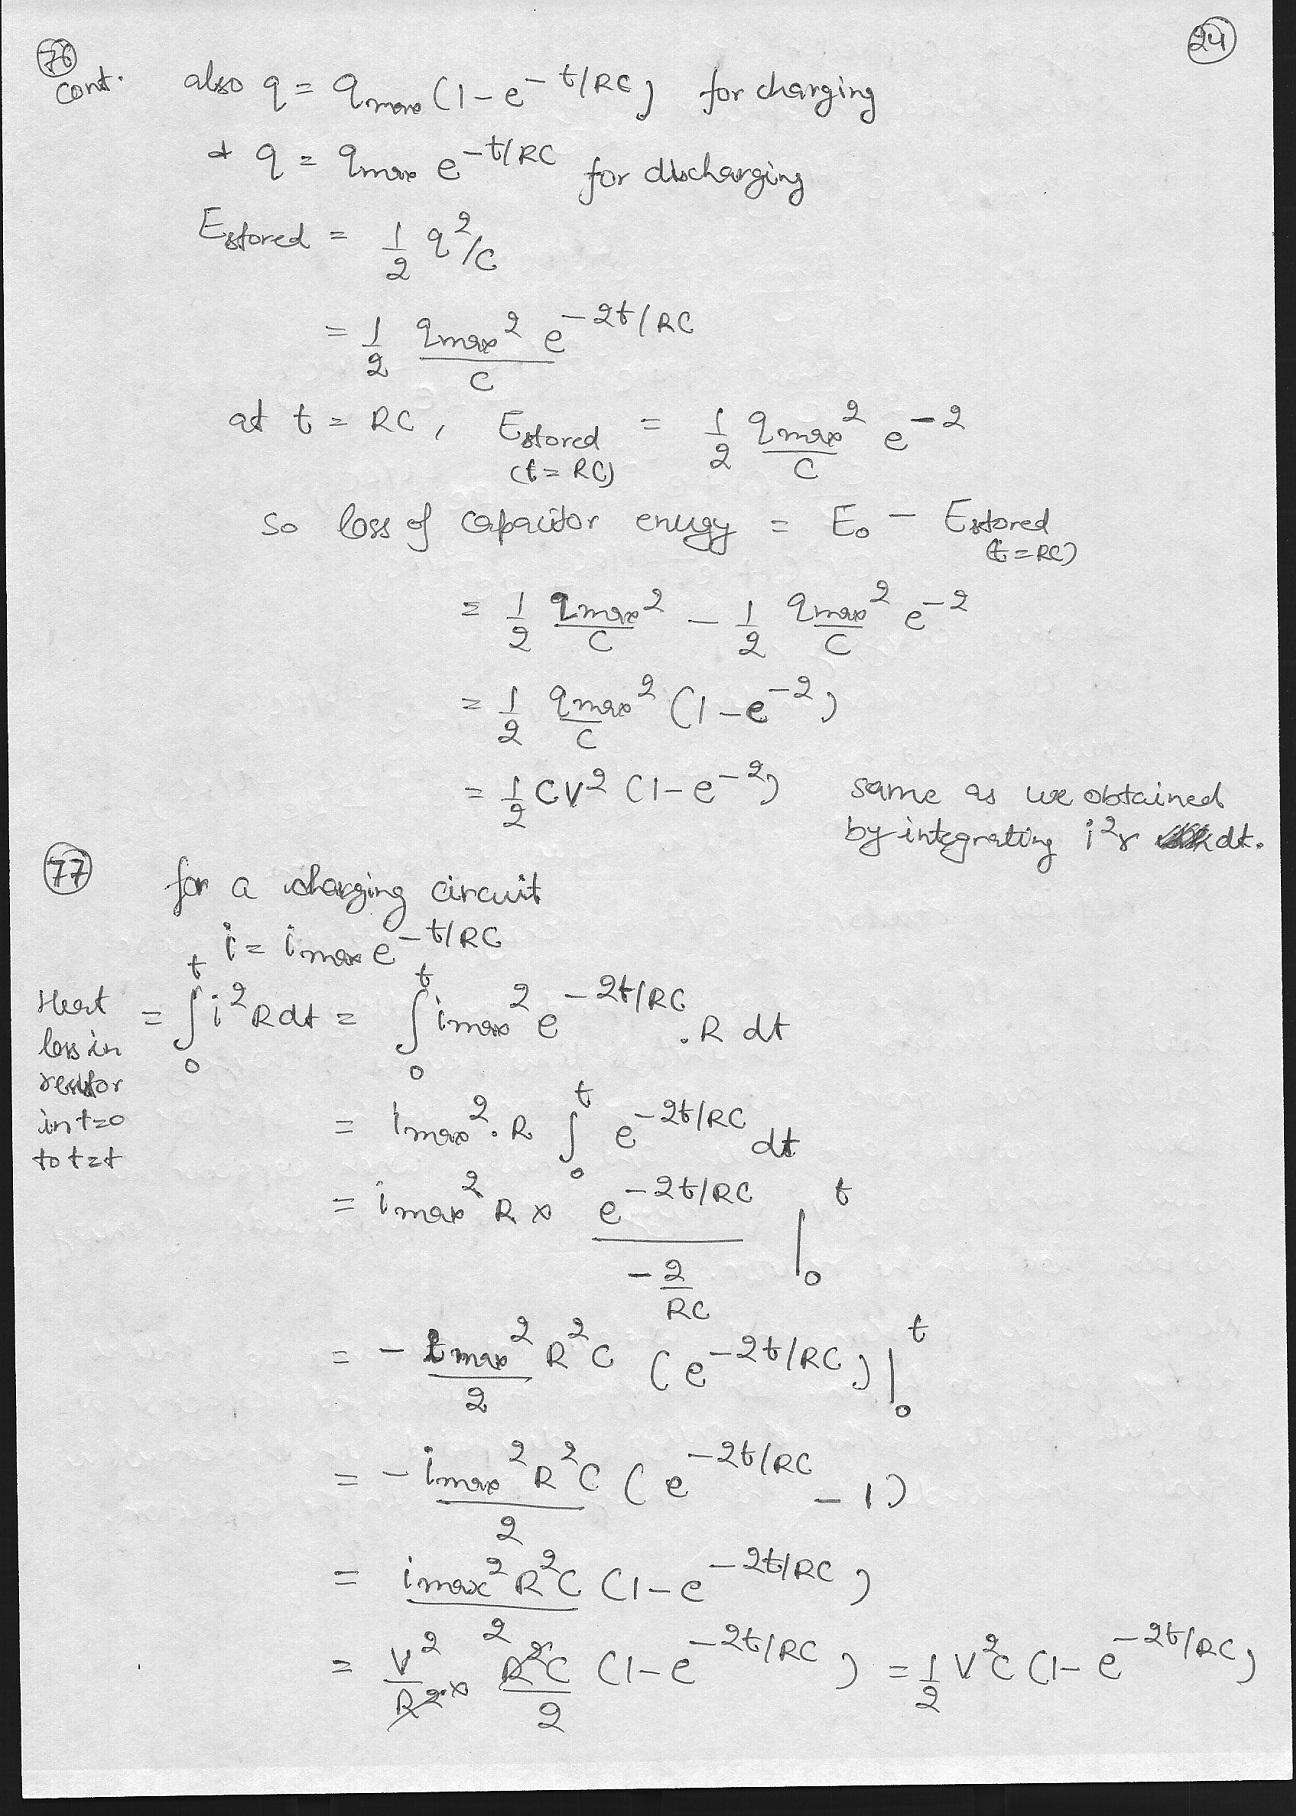 76 cont.
24
also q = qmax (1 - e^-t/RC) for charging
& q = qmax e^-t/RC for discharging
Estored = 1/2 q²/C
= 1/2 qmax²/C e^-2t/RC
at t = RC, Estored (t = RC) = 1/2 qmax²/C e^-2
So loss of capacitor energy = E₀ - Estored (t = RC)
= 1/2 qmax²/C - 1/2 qmax²/C e^-2
= 1/2 qmax²/C (1 - e^-2)
= 1/2 CV² (1 - e^-2) same as we obtained
by integrating i²r dt.
77 for a charging circuit
i = imax e^-t/RC
Heat loss in resistor in t=0 to t=t = ∫₀^t i²R dt = ∫₀^t imax² e^-2t/RC . R dt
= imax² . R ∫₀^t e^-2t/RC dt
= imax² R x e^-2t/RC / (-2/RC) |₀^t
= - imax²/2 R²C (e^-2t/RC) |₀^t
= - imax² R²C/2 (e^-2t/RC - 1)
= imax² R²C/2 (1 - e^-2t/RC)
= V²/R² x R²C/2 (1 - e^-2t/RC) = 1/2 V²C (1 - e^-2t/RC)